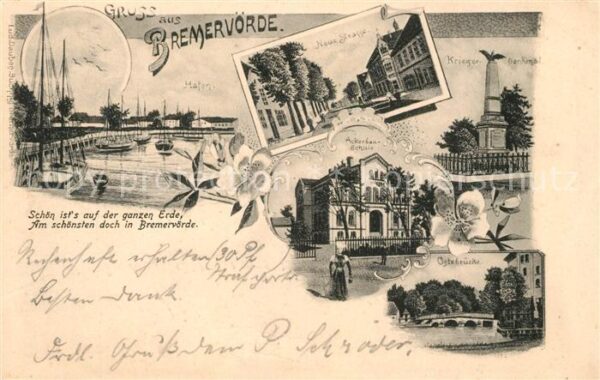 GRUSS aus
BREMERVÖRDE.
Hafen
Neue Strasse
Krieger-Denkmal
Ackerbau-
Schule
Schön ist's auf der ganzen Erde,
Am schönsten doch in Bremervörde.
Ostebrücke
erhalten 30 Pf
Strafporto.
Besten Dank.
Frdl. Gruß dem P. Schroder.